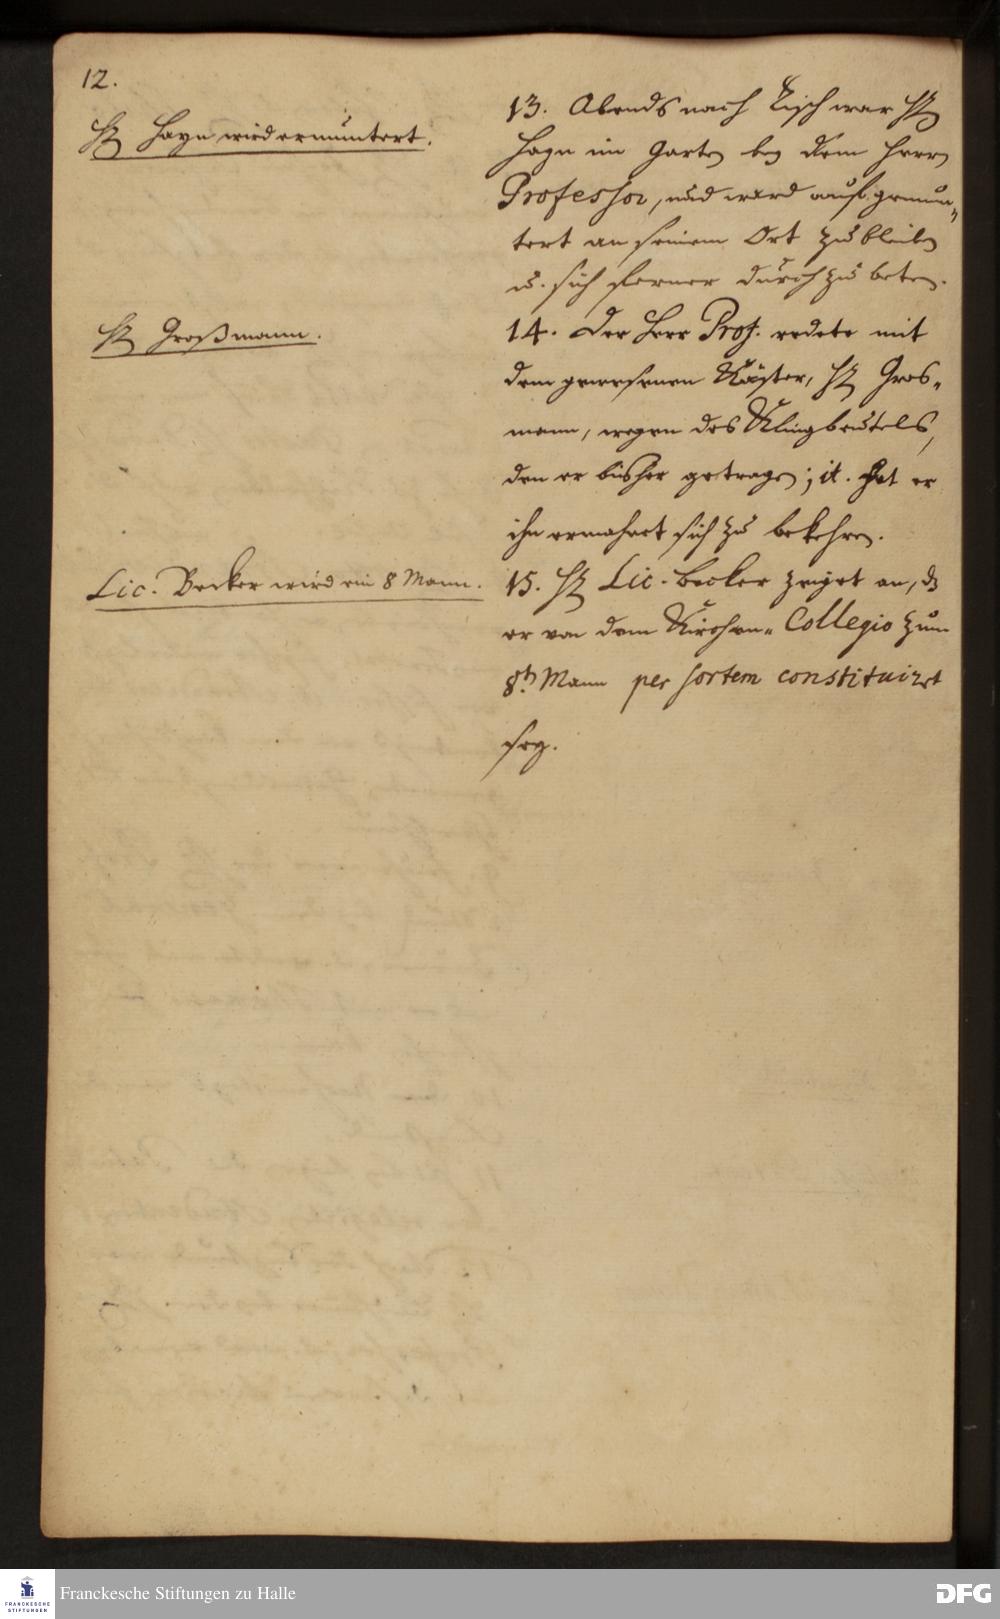 12.
H. Hayn wird ermuntert.
13. Abends nach Tisch war H.
Hayn im Garten bey dem Herrn
Professor, und ward aufgemun-
tert an seinem Ort zu bleiben
u. sich ferner durchzubeten.
H. Großmann.
14. Der Herr Prof. redete mit
dem gewesenen Küster, H. Gros-
mann, wegen des Klingbeutels,
den er bisher getragen; it. hat er
ihn ermahnet sich zu bekehren.
Lic. Becker wird ein 8 Mann.
15. H. Lic. Becker zeiget an, dß
er von dem Kirchen-Collegio zum
8t. Mann per sortem constituiret
sey.
FRANCKESCHE
STIFTUNGEN
Franckesche Stiftungen zu Halle
DFG